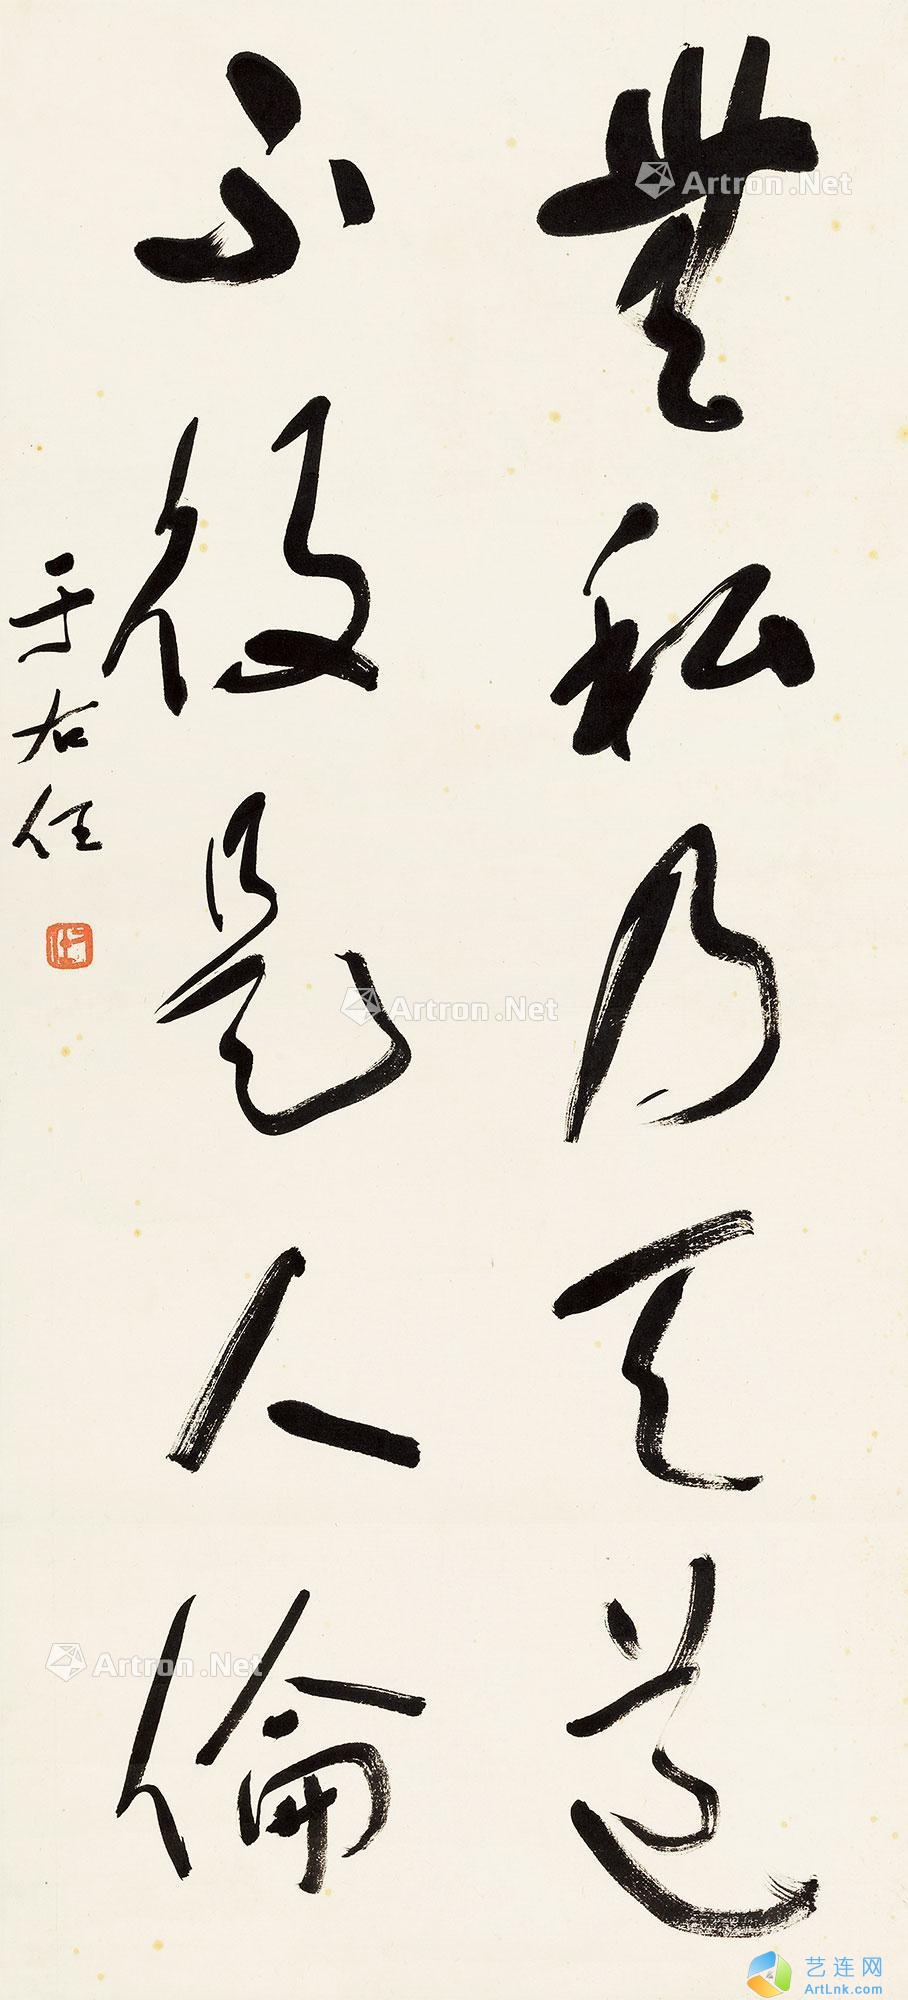 無私乃天道
不役是人倫
于右任
Artron.Net
Artron.Net
Artron.Net
艺连网
ArtLnk.com